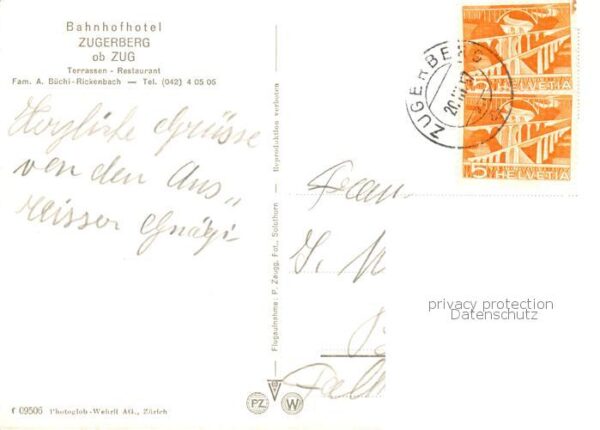 Bahnhofhotel
ZUGERBERG
ob ZUG
Terrassen - Restaurant
Fam. A. Büchi-Rickenbach — Tel. (042) 4 05 06
Herzliche Grüsse
von den Aus„
reisser Gnägi
Flugaufnahme: P. Zaugg, Fot., Solothurn - Reproduktion verboten
ZUGERBERG
5 HELVETIA
5 HELVETIA
Frau
privacy protection
Datenschutz
PZ
W
f 09506 Photoglob-Wehrli AG., Zürich